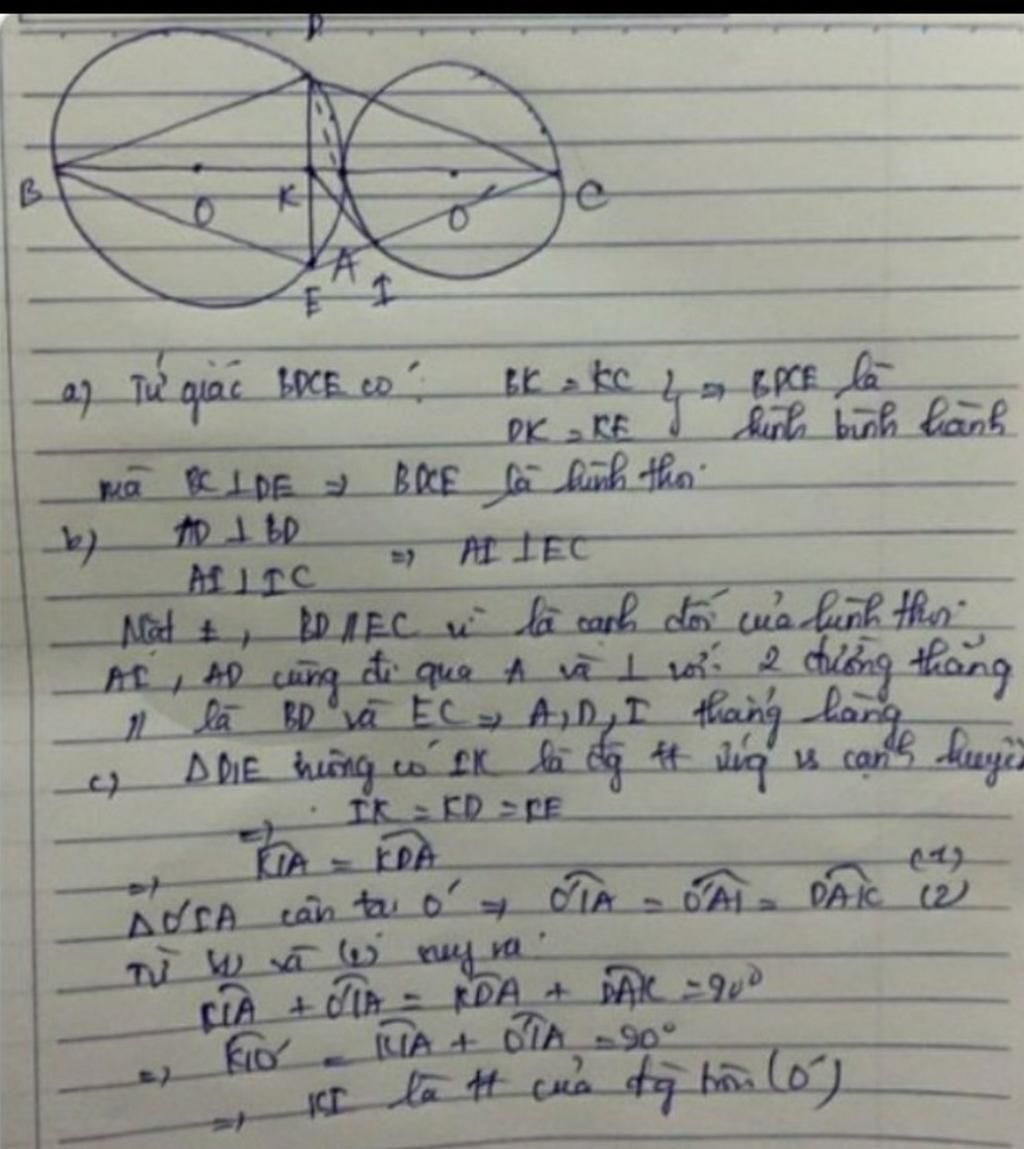 D
B O K O' C
A
E I
a) Tứ giác BDCE có: BK = KC } => BDCE là
DK = KE hình bình hành
mà BC ⊥ DE => BDCE là hình thoi
b) AD ⊥ BD
AI ⊥ IC => AI ⊥ EC
Mặt ≠, BD // EC vì là cạnh đối của hình thoi
AI, AD cùng đi qua A và ⊥ với 2 đường thẳng
// là BD và EC => A, D, I thẳng hàng
c) Δ DIE vuông có IK là đg tt ứng vs cạnh huyền
=> IK = KD = KE
=> KIA = KDA (1)
Δ O'IA cân tại O' => O'IA = O'AI = DAK (2)
Từ (1) và (2) suy ra:
KIA + O'IA = KDA + DAK = 90°
=> KIO' = KIA + O'IA = 90°
=> KI là tt của đg tròn (O')